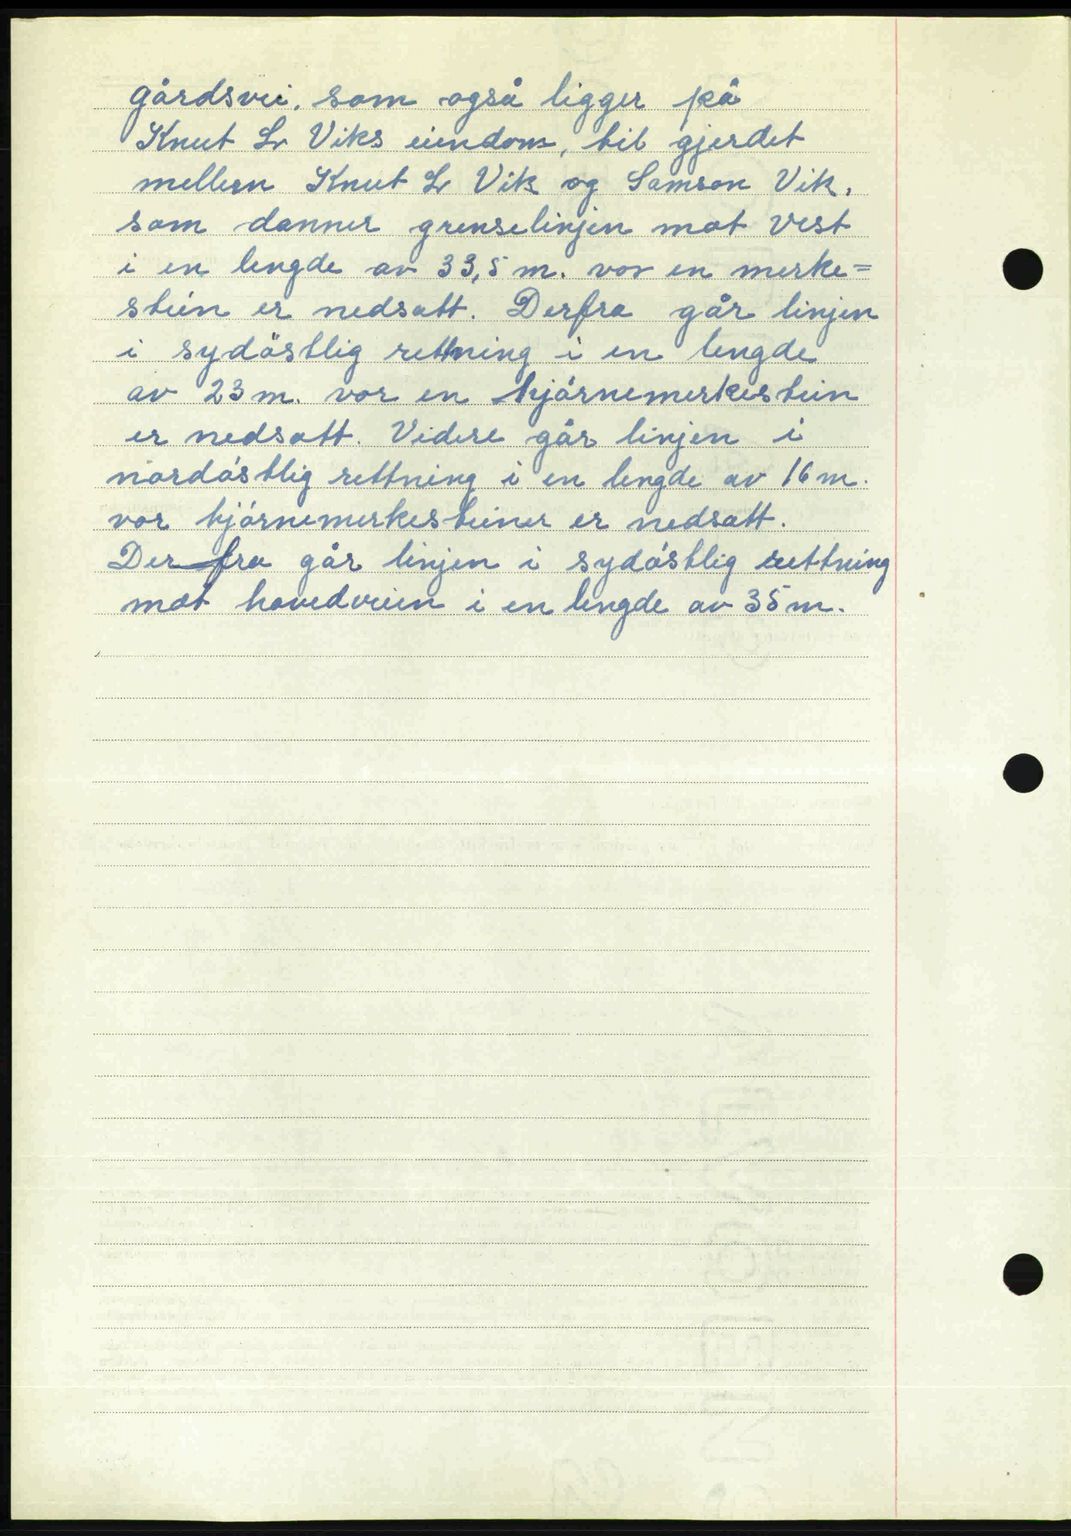 gårdsvei, som også ligger på
Knut L Viks eiendom, til gjerdet
mellem Knut L Vik og Samson Vik,
som danner grenselinjen mot vest
i en lengde av 33,5 m. vor en merke=
stein er nedsatt. Derfra går linjen
i sydöstlig rettning i en lengde
av 23 m. vor en hjórnemerkestein
er nedsatt. Videre går linjen i
nordóstlig rettning i en lengde av 16 m.
vor hjórnemerkesteiner er nedsatt.
Der fra går linjen i sydóstlig rettning
mot hovedveien i en lengde av 35 m.